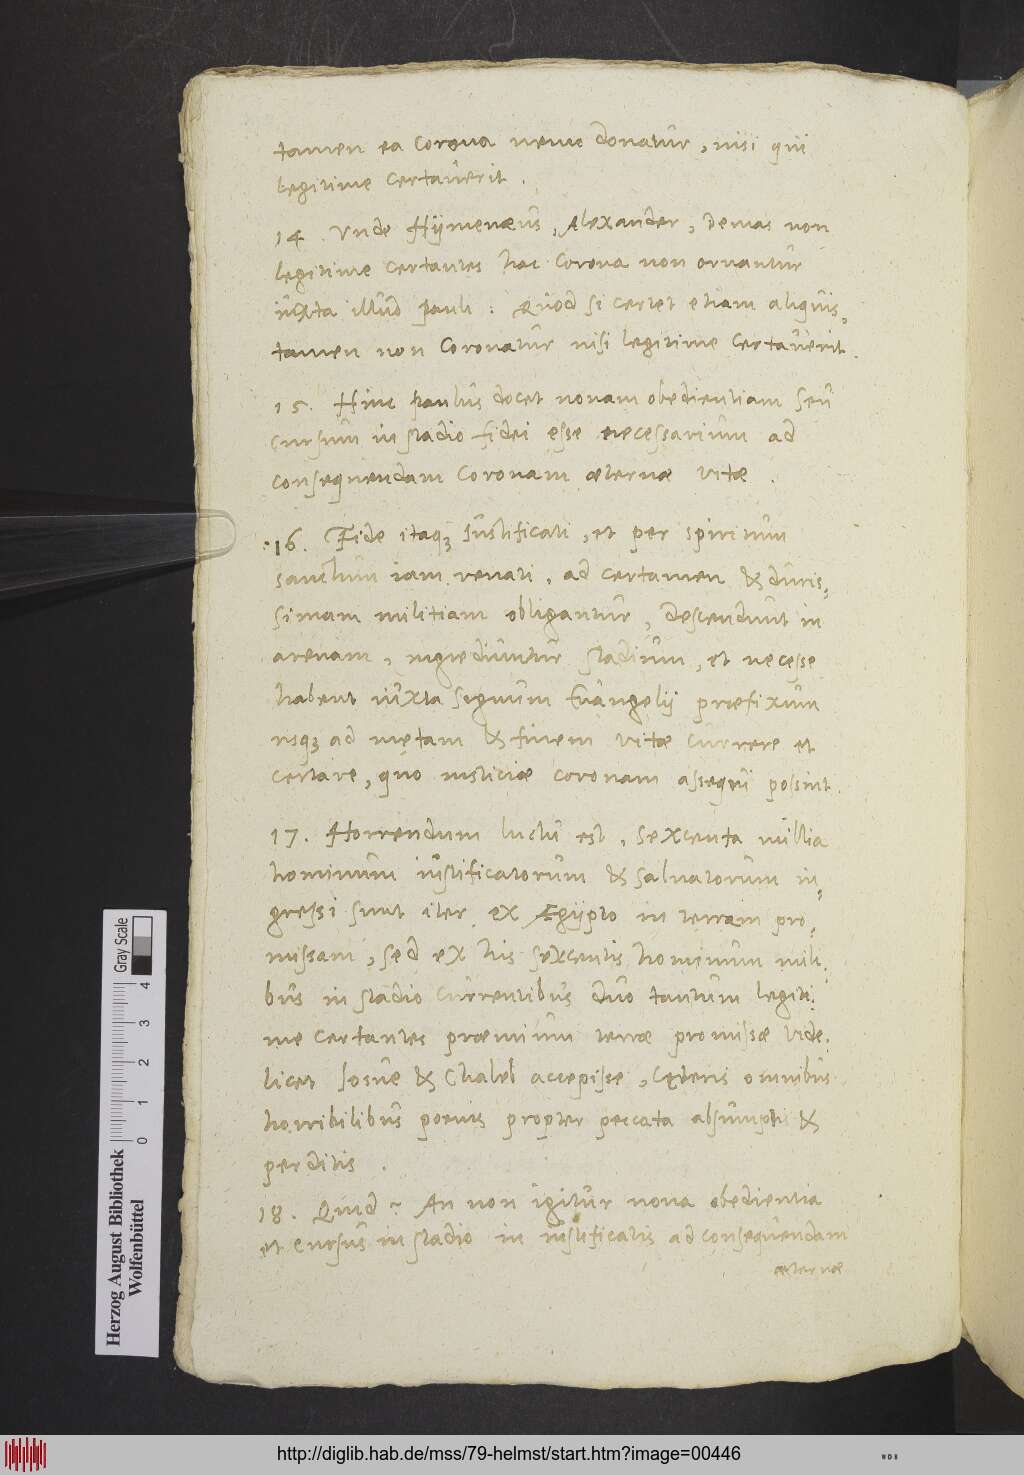 tamen ea corona nemo donatur, nisi qui
legitime certaverit.
14. Unde Hijmenæus, Alexander, Demas non
legitime certantes hac corona non ornantur
iuxta illud Pauli: Quod si certet etiam aliquis,
tamen non coronatur nisi legitime certaverit.
15. Hinc Paulus docet novam obedientiam seu
cursum in stadio fidei esse necessarium ad
consequendam coronam æternæ vitæ.
16. Fide itaqꝫ iustificati, et per spiritum
sanctum iam renati, ad certamen & duris,
simam militiam obligantur, descendunt in
arenam, ingrediuntur stadium, et necesse
habent iuxta signum Euangelij præfixum
usqꝫ ad metam & finem vitæ currere et
certare, quo iusticiæ coronam assequi possint.
17. Horrendum luctu est, sexcenta millia
hominum iustificatorum & salvatorum in,
gressi sunt iter ex Ægijpto in terram pro,
missam, sed ex his sexcentis hominum mili,
bus in stadio currentibus duo tantum legiti,
me certantes præmium terræ promissæ vide,
licet Josue & Chaleb accepisse, cæteris omnibus
horribilibus poenis propter peccata absumptis &
perditis.
18. Quid? An non igitur nova obedientia
et cursus in stadio in iustificatis ad consequendam
æternæ
Gray Scale
0 1 2 3 4
Herzog August Bibliothek
Wolfenbüttel
http://diglib.hab.de/mss/79-helmst/start.htm?image=00446
WDB